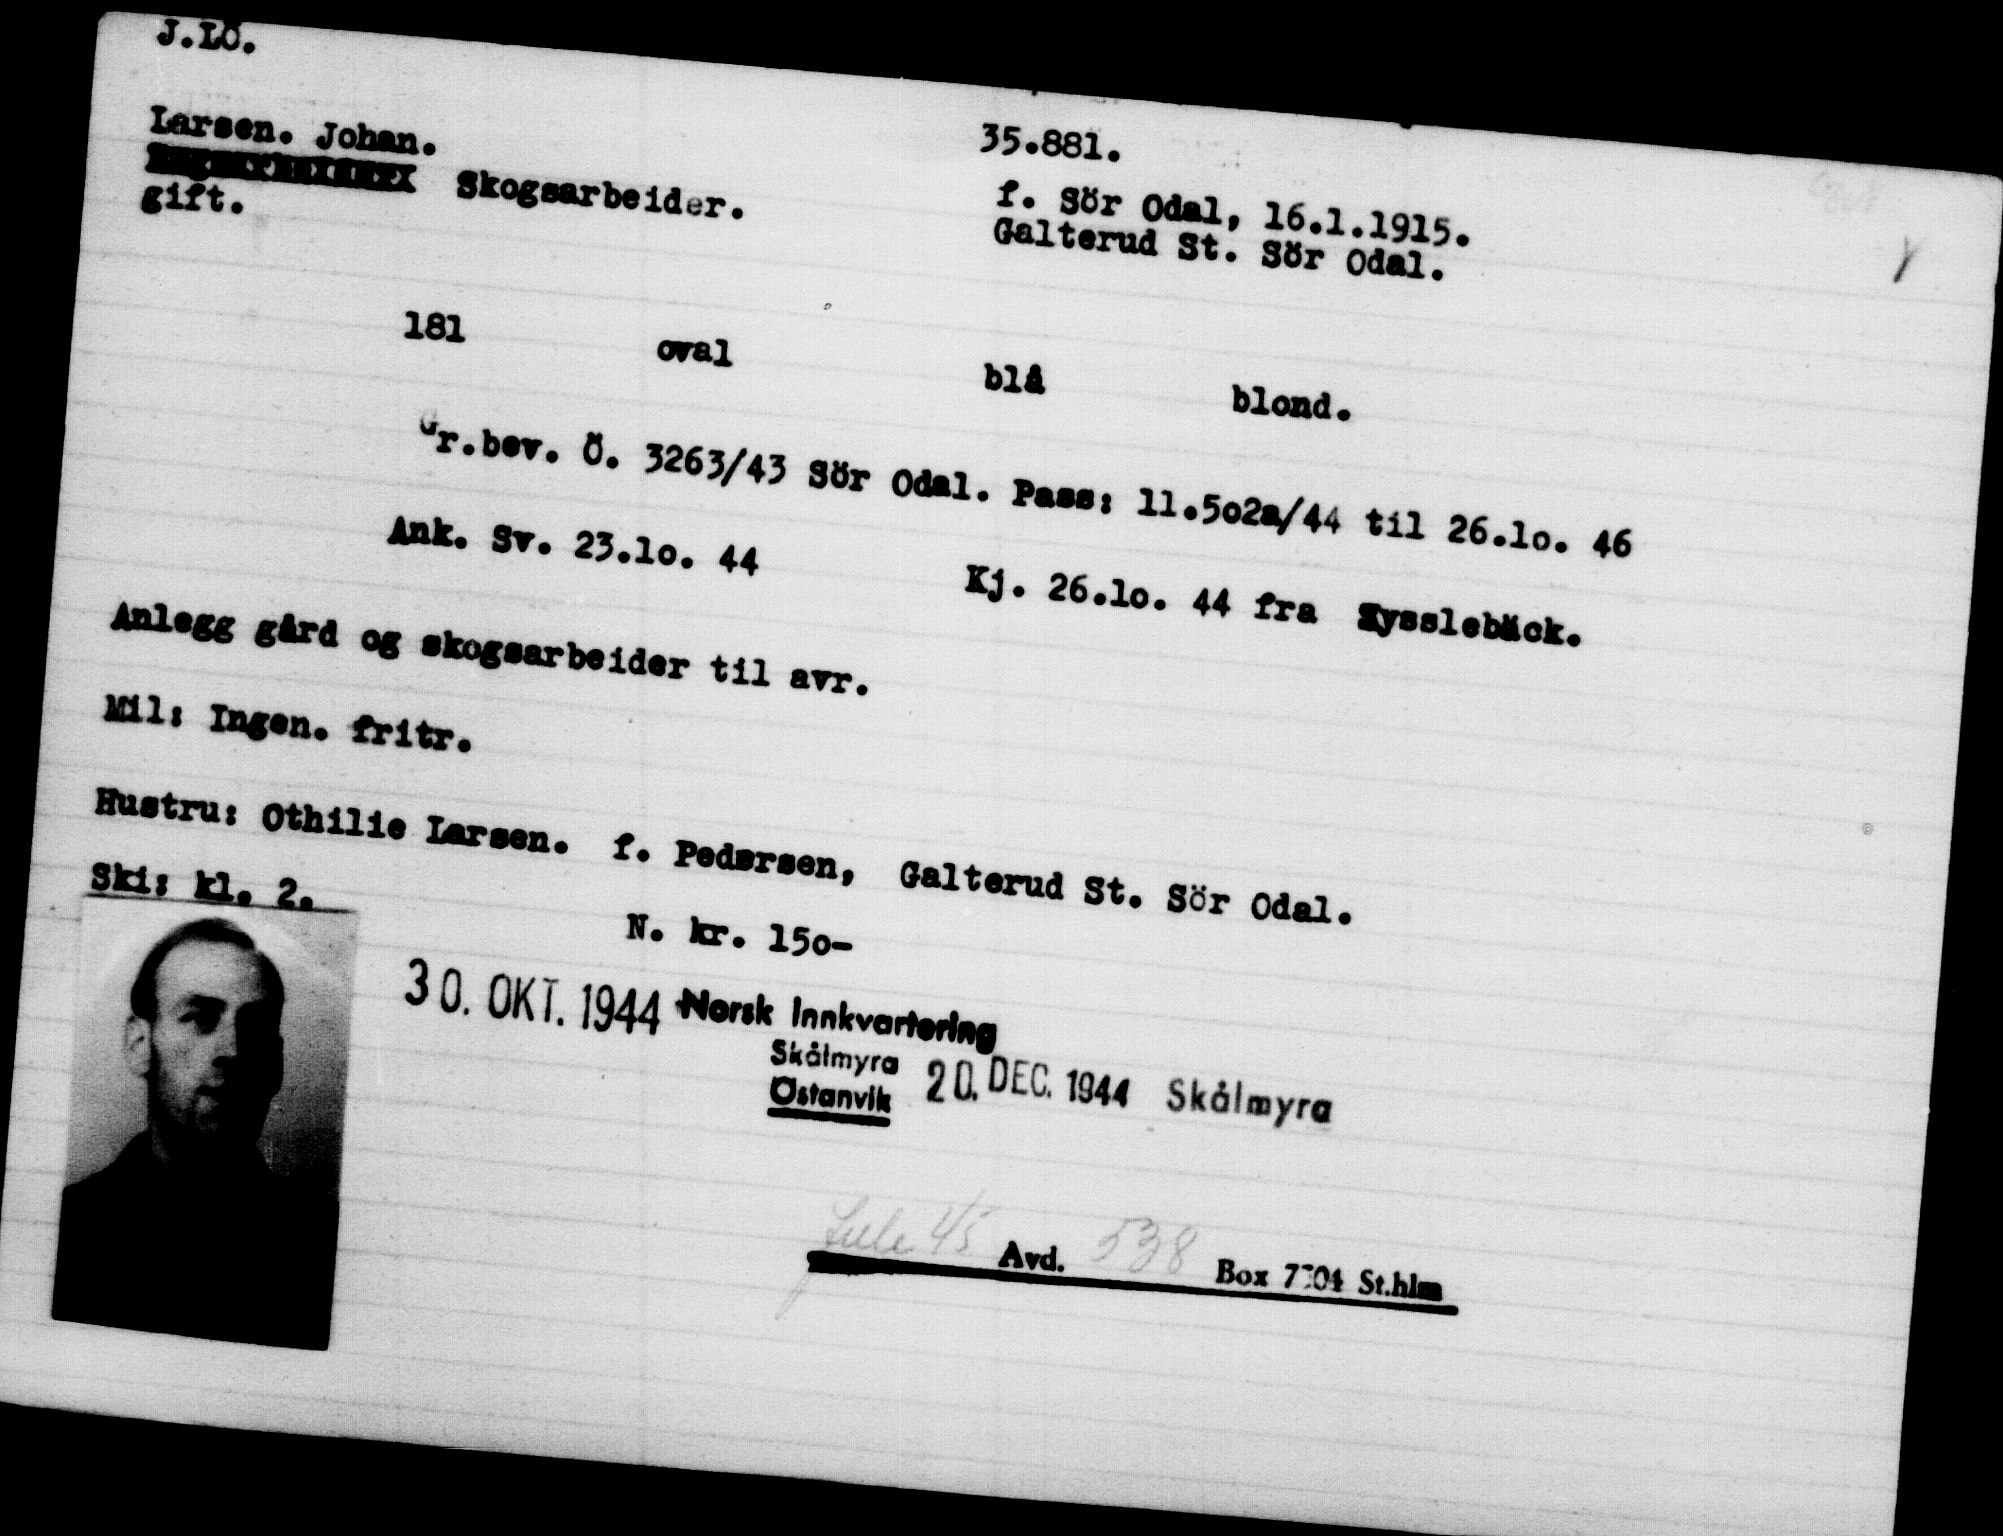 J.LÖ.
Larsen. Johan.
35.881.
Skogsarbeider.
f. Sör Odal, 16.1.1915.
gift.
Galterud St. Sör Odal.
181 oval blå blond.
Gr.bev. Ö. 3263/43 Sör Odal. Pass: 11.5o2a/44 til 26.1o. 46
Ank. Sv. 23.1o. 44 Kj. 26.1o. 44 fra Sysslebäck.
Anlegg gård og skogsarbeider til avr.
Mil: Ingen. fritr.
Hustru: Othilie Larsen. f. Pedersen, Galterud St. Sör Odal.
Ski: kl. 2.
N. kr. 15o-
30. OKT. 1944 Norsk Innkvartering
Skålmyra
Östanvik
20. DEC. 1944 Skålmyra
45 Avd. 538 Box 7704 St.hlm